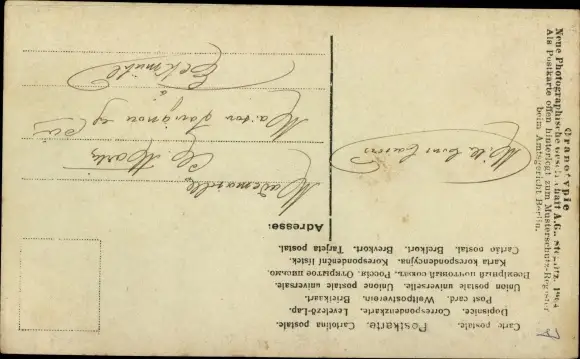 Carte postale. Postkarte. Cartolina postale.
Dopisnice. Correspondenzkarte. Levelező-Lap.
Post card. Weltpostverein. Briefkaart.
Union postale universelle. Unione postale universale.
Всемірный почтовый союзъ. Россія. Открытое письмо.
Karta korespondencyjna. Korespondenční lístek.
Cartão postal. Brefkort. Brevkort. Tarjeta postal.
Adresse:
Mademoiselle
Eckmühl
Mille bons baisers
Granotypie
Neue Photographische Gesellschaft A.G., Steglitz, 1904
Als Postkarte offen hinterlegt zum Musterschutz-Register
beim Amtsgericht Berlin.